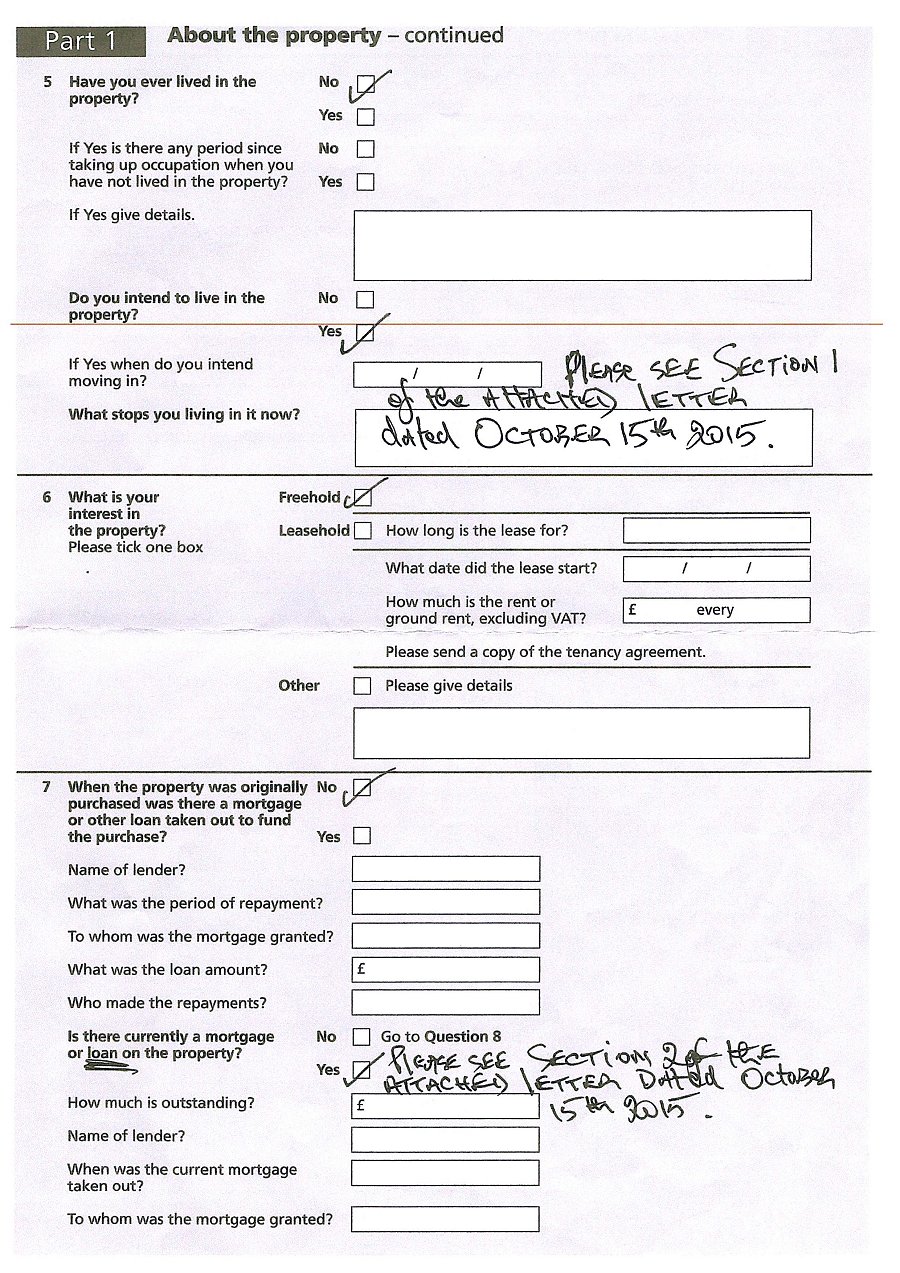 Part 1 About the property – continued
5 Have you ever lived in the No
property?
Yes
If Yes is there any period since No
taking up occupation when you
have not lived in the property? Yes
If Yes give details.
Do you intend to live in the No
property?
Yes
If Yes when do you intend / / PLEASE SEE SECTION 1
moving in?
of the ATTACHED LETTER
What stops you living in it now?
dated OCTOBER 15th 2015.
6 What is your Freehold
interest in
the property? Leasehold How long is the lease for?
Please tick one box
What date did the lease start? / /
How much is the rent or £ every
ground rent, excluding VAT?
Please send a copy of the tenancy agreement.
Other Please give details
7 When the property was originally No
purchased was there a mortgage
or other loan taken out to fund
the purchase? Yes
Name of lender?
What was the period of repayment?
To whom was the mortgage granted?
What was the loan amount? £
Who made the repayments?
Is there currently a mortgage No Go to Question 8
or loan on the property?
Yes PLEASE SEE SECTION 2 of the
ATTACHED LETTER DATED OCTOBER
How much is outstanding? £ 15th 2015.
Name of lender?
When was the current mortgage
taken out?
To whom was the mortgage granted?